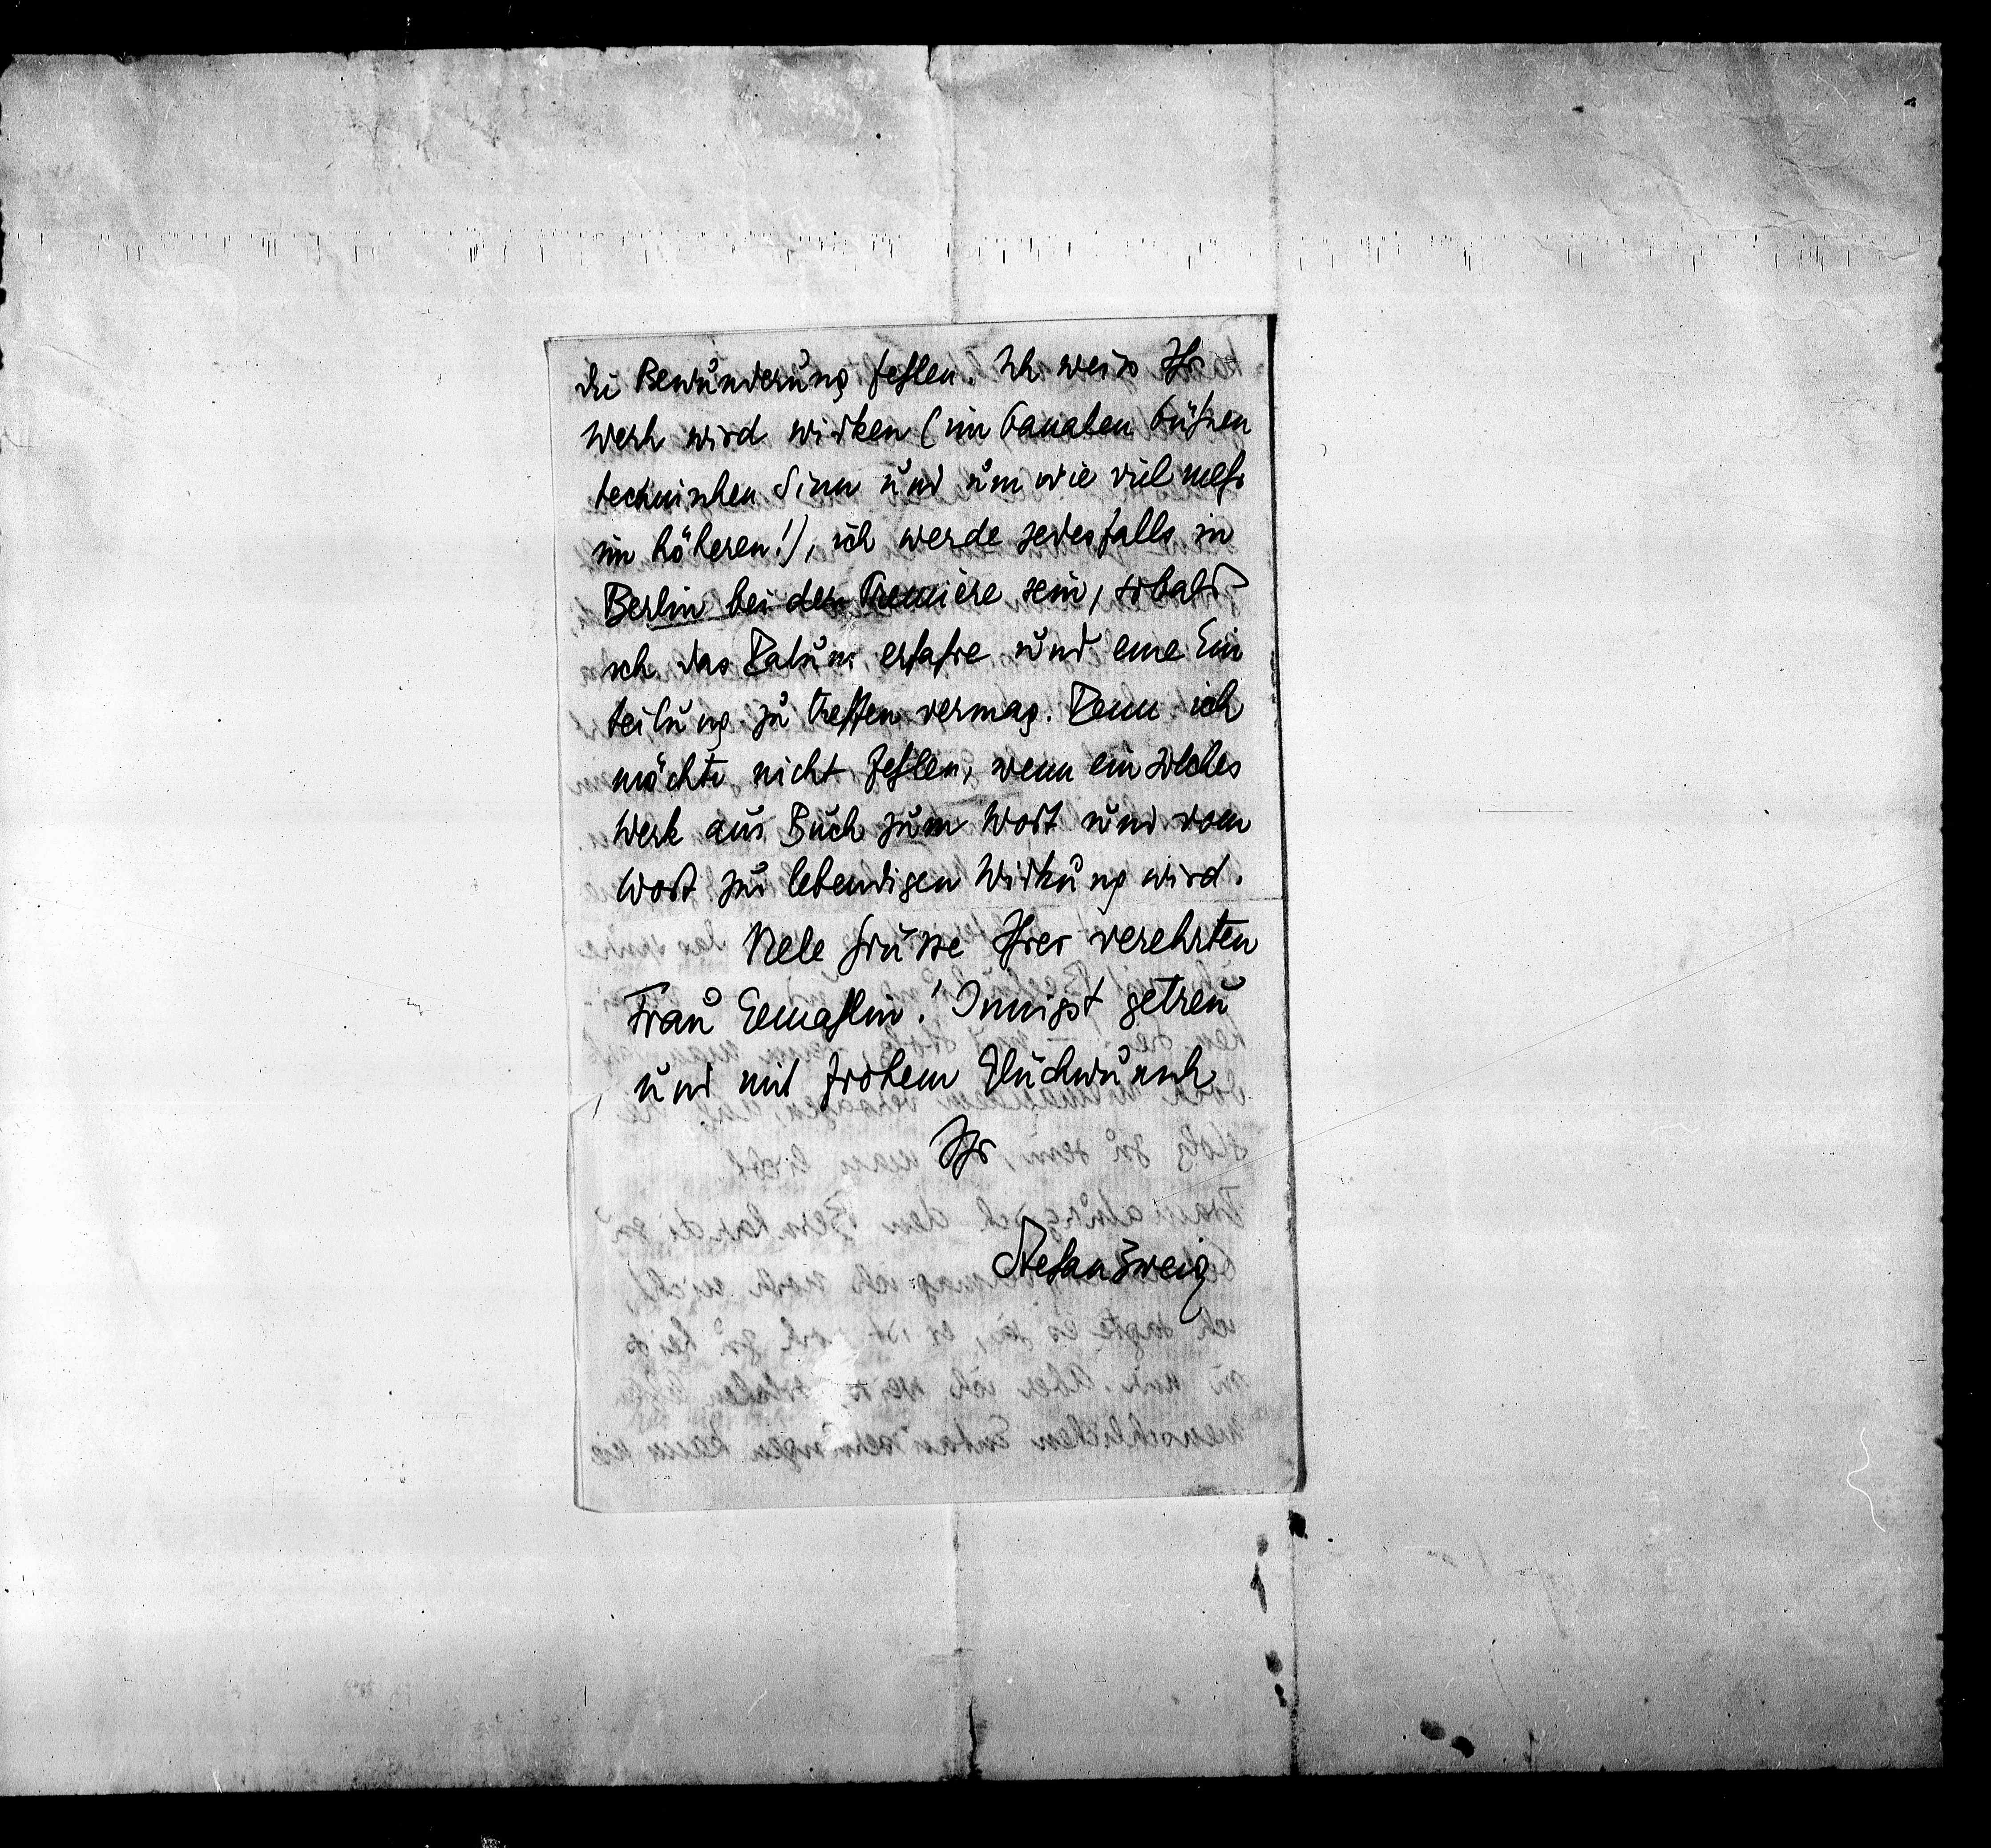 die Bewunderung fehlen. Ich weiss Ihr
Werk wird wirken (im banalen bühnen
technischen Sinn und um wie viel mehr
im höheren!), ich werde jedesfalls in
Berlin bei der Première sein, sobald
ich das Datum erfahre und eine Ein
teilung zu treffen vermag. Denn ich
möchte nicht fehlen, wenn ein solches
Werk aus Buch zum Wort und vom
Wort zur lebendigen Wirkung wird.
Viele Grüsse Ihrer verehrten
Frau Gemahlin! Innigst getreu
und mit frohem Glückwunsch
Ihr
Stefan Zweig